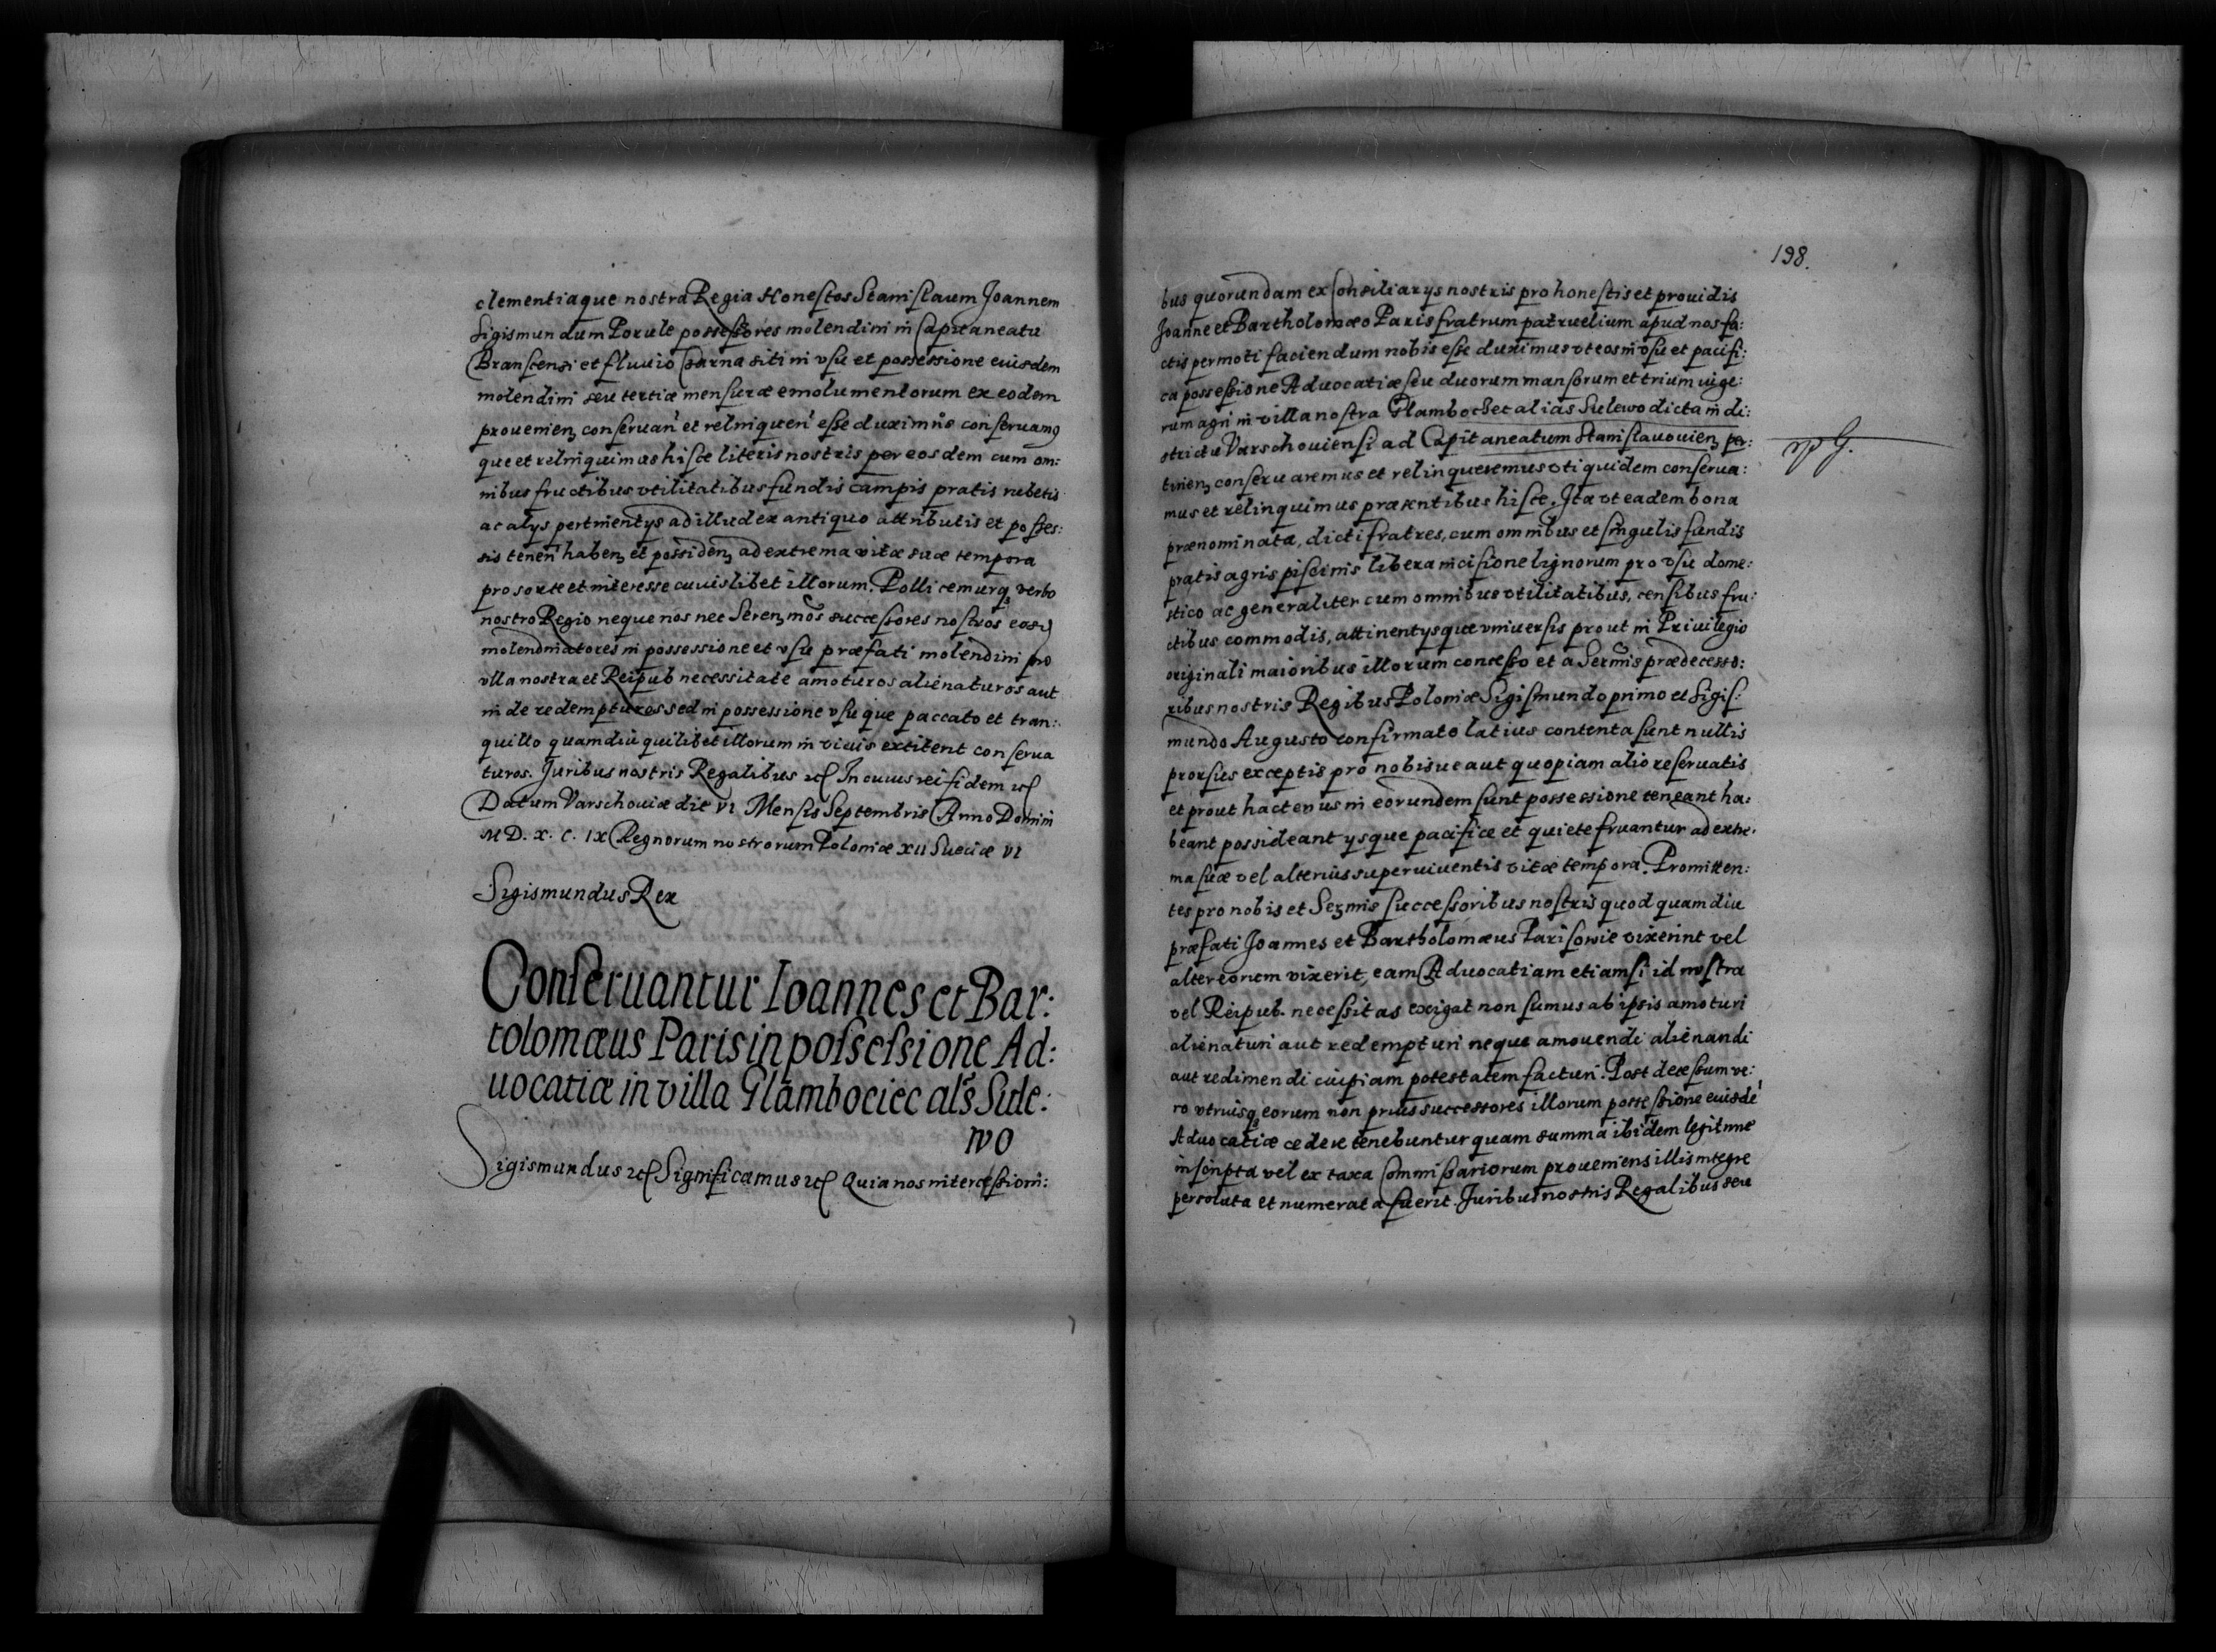 clementiaque nostra Regia Honestos Stanislaum Joannem
Sigismundum Porule possessores molendini in Capitaneatu
Branscensi et fluvio Czarna siti in vsu et possessione eiusdem
molendini seu tertiæ mensuræ emolumentorum ex eodem
prouenien, conseruan et relinquen esse duximus conseruamus
que et relinquimus hisce literis nostris per eosdem cum om:
nibus fructibus vtilitatibus fundis campis pratis rubetis
ac alys pertinentys ad illud ex antiquo attributis et posses:
sis tenen haben, et possiden, ad extrema vitæ suæ tempora
pro sorte et interesse cuiuslibet illorum. Pollicemurq verbo
nostro Regio neque nos nec Seren,mos successores nostros eosd
molendinatores in possessione et vsu præfati molendini pro
vlla nostra et Reipub necessitate amoturos alienaturos aut
in de redempturos sed in possessione vsuque paccato et tran:
quillo quamdiu quilibet illorum in viuis extiterit conserua
turos. Juribus nostris Regalibus etc In cuius rei fidem etc
Datum Varschouiæ die VI Mensis Septembris Anno Domini
M D. X. C. IX Regnorum nostrorum Poloniæ XII Sueciæ VI
Sigismundus Rex
Conseruantur Ioannes et Bar:
tolomæus Paris in possessione Ad:
uocatiæ in villa Glambociec als Sule:
wo
Sigismundus etc Significamus etc Quia nos intercessioni:
198.
bus quorundam ex Consiliarys nostris pro honestis et prouidis
Joanne et Bartholomæo Paris fratrum patruelium apud nos fa:
ctis permoti faciendum nobis esse duximus vt eos in vsu et pacifi:
ca possessione Aduocatiæ seu duorum mansorum et trium iuge:
rum agri in villa nostra Glambociec alias Sulewo dicta in di:
strictu Varschouiensi ad Capitaneatum Stanislauouien, per:
tinen, conseruaremus et relinqueremus vti quidem conserua:
mus et relinquimus præsentibus hisce. Ita vt eadem bona
prænominata, dicti fratres, cum omnibus et singulis fundis
pratis agris piscinis libera incisione lignorum pro vsu dome:
stico ac generaliter cum omnibus vtilitatibus, censibus fru:
ctibus commodis, attinentysque vniuersis prout in Priuilegio
originali maioribus illorum concesso et a Sermis prædecesso:
ribus nostris Regibus Poloniæ Sigismundo primo et Sigis:
mundo Augusto confirmato latius contenta sunt nullis
prorsus exceptis pro nobisue aut quopiam alio reseruatis
et prout hactenus in eorundem sunt possessione teneant ha:
beant possideant ysque pacifice et quiete fruantur ad extre:
ma suæ vel alterius superuiuentis vitæ tempora. Promitten:
tes pro nobis et Sermis successoribus nostris quod quamdiu
præfati Joannes et Bartholomæus Parisowie vixerint vel
alter eorum vixerit, eam Aduocatiam etiamsi id nostra
vel Reipub. necessitas exigat non sumus ab ipsis amoturi
alienaturi aut redempturi neque amouendi alienandi
aut redimendi cuipiam potestatem facturi. Post decessum ve:
ro vtriusq eorum non prius successores illorum possessione eiusdē
Aduocatiæ cedere tenebuntur quam summa ibidem legitime
inscripta vel ex taxa Commissariorum proueniens illis integre
persoluta et numerata fuerit. Juribus nostris Regalibus seu